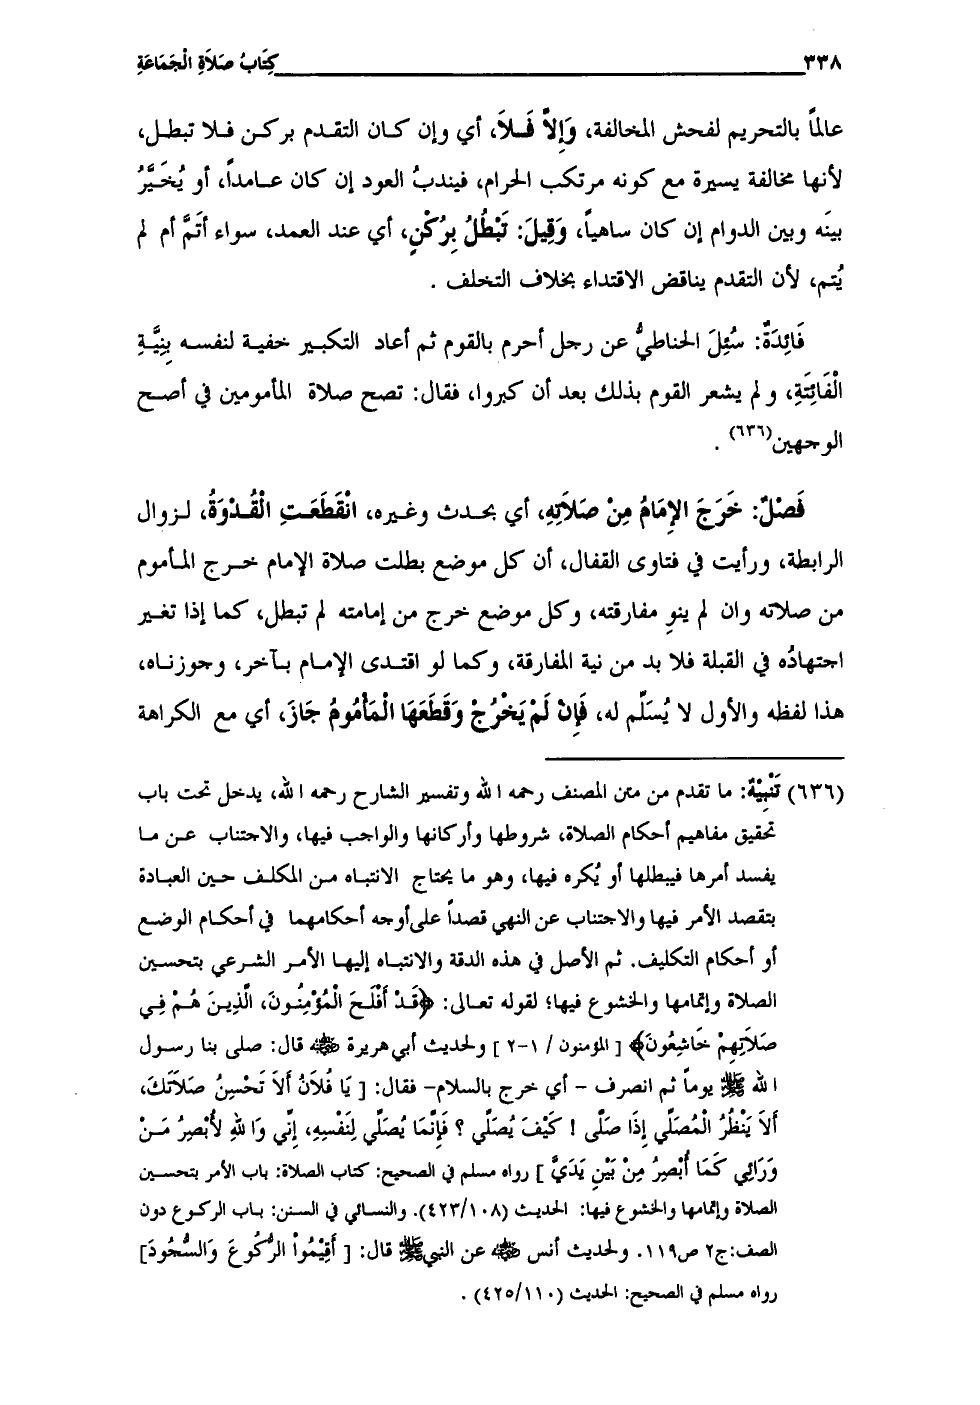 ٣٣٨ كِتَابُ صَلاَةِ الْجَمَاعَةِ
عالماً بالتحريم لفحش المخالفة، وَإِلاَّ فَلاَ، أي وإن كان التقدم بركن فلا تبطل،
لأنها مخالفة يسيرة مع كونه مرتكب الحرام، فيندبُ العود إن كان عامداً، أو يُخَيَّرُ
بينَه وبين الدوام إن كان ساهياً، وَقِيلَ: تَبْطُلُ بِرُكْنٍ، أي عند العمد، سواء أتَمَّ أم لم
يُتم، لأن التقدم يناقض الاقتداء بخلاف التخلف .
فَائِدَةٌ: سُئِلَ الحناطيُّ عن رجل أحرم بالقوم ثم أعاد التكبير خفية لنفسه بِنِيَّةِ
الْفَائِتَةِ، ولم يشعر القوم بذلك بعد أن كبروا، فقال: تصح صلاة المأمومين في أصح
الوجهين(٦٣٦) .
فَصْلٌ: خَرَجَ الإِمَامُ مِنْ صَلاَتِهِ، أي بحدث وغيره، انْقَطَعَتِ الْقُدْوَةُ، لزوال
الرابطة، ورأيت في فتاوى القفال، أن كل موضع بطلت صلاة الإمام خرج المأموم
من صلاته وان لم ينوِ مفارقته، وكل موضع خرج من إمامته لم تبطل، كما إذا تغير
اجتهادُه في القبلة فلا بد من نية المفارقة، وكما لو اقتدى الإمام بآخر، وجوزناه،
هذا لفظه والأول لا يُسَلَّم له، فَإِنْ لَمْ يَخْرُجْ وَقَطَعَهَا الْمَأْمُومُ جَازَ، أي مع الكراهة
(٦٣٦) تَنْبِيْهٌ: ما تقدم من متن المصنف رحمه الله وتفسير الشارح رحمه الله، يدخل تحت باب
تحقيق مفاهيم أحكام الصلاة، شروطها وأركانها والواجب فيها، والاجتناب عن ما
يفسد أمرها فيبطلها أو يُكره فيها، وهو ما يحتاج الانتباه من المكلف حين العبادة
بتقصد الأمر فيها والاجتناب عن النهي قصداً على أوجه أحكامهما في أحكام الوضع
أو أحكام التكليف. ثم الأصل في هذه الدقة والانتباه إليها الأمر الشرعي بتحسين
الصلاة وإتمامها والخشوع فيها؛ لقوله تعالى: ﴿قَدْ أَفْلَحَ الْمُؤْمِنُونَ، الَّذِينَ هُمْ فِي
صَلاَتِهِمْ خَاشِعُونَ﴾ [المؤمنون / ١-٢ ] ولحديث أبي هريرة ﷺ قال: صلى بنا رسول
الله ﷺ يوماً ثم انصرف - أي خرج بالسلام- فقال: [ يَا فُلاَنُ أَلاَ تَحْسِنُ صَلاَتَكَ،
أَلاَ يَنْظُرُ الْمُصَلِّي إِذَا صَلَّى ! كَيْفَ يُصَلِّي ؟ فَإِنَّمَا يُصَلِّي لِنَفْسِهِ، إِنِّي وَاللهِ لأُبْصِرُ مَنْ
وَرَائِي كَمَا أُبْصِرُ مِنْ بَيْنِ يَدَيَّ ] رواه مسلم في الصحيح: كتاب الصلاة: باب الأمر بتحسين
الصلاة وإتمامها والخشوع فيها: الحديث (٤٢٣/١٠٨). والنسائي في السنن: باب الركوع دون
الصف:ج٢ ص١١٩. ولحديث أنس ﷺ عن النبي ﷺ قال: [ أَقِيْمُواْ الرُّكُوعَ وَالسُّجُودَ]
رواه مسلم في الصحيح: الحديث (٤٢٥/١١٠) .